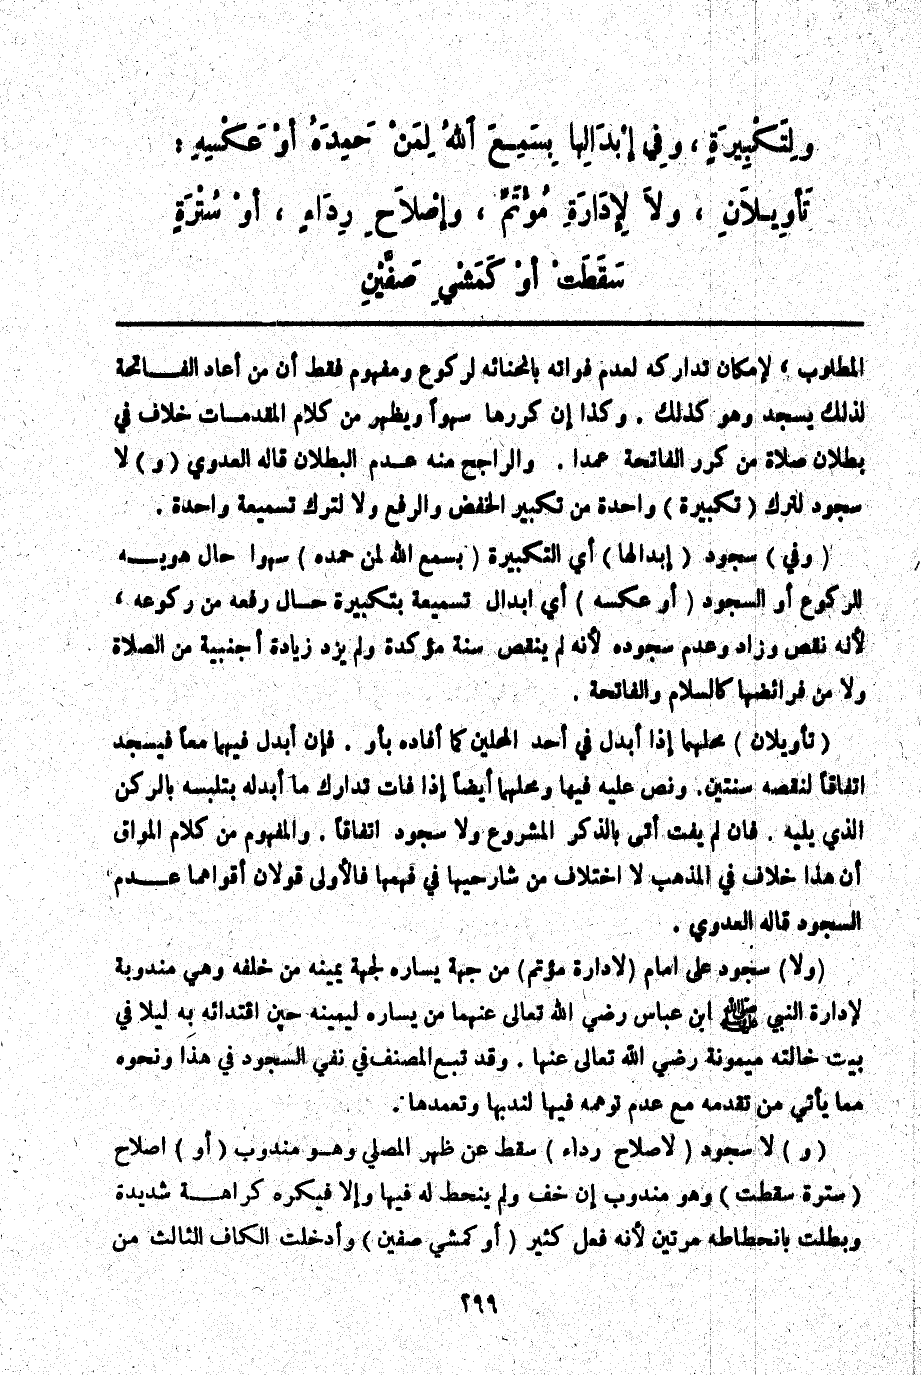 ولِتَكْبِيرَةٍ ، وفِي إبْدَالِها بِسَمِعَ اللهُ لِمَنْ حَمِدَهُ أوْ عَكْسِهِ :
تَأوِيلاَنِ ، ولاَ لِإدَارَةِ مُؤْتَمٍّ ، وإصْلاَحِ رِدَاءٍ ، أوْ سُتْرَةٍ
سَقَطَتْ أوْ كَمَشْيِ صَفَّيْنِ
المطلوب ؛ لإمكان تداركه لعدم فواته بانحنائه لركوع ومفهوم فقط أن من أعاد الفـــاتحة
لذلك يسجد وهو كذلك . وكذا إن كررها سهواً ويظهر من كلام المقدمــات خلاف في
بطلان صلاة من كرر الفاتحة عمدا . والراجح منه عــدم البطلان قاله العدوي ( و ) لا
سجود لترك ( تكبيرة ) واحدة من تكبير الخفض والرفع ولا لترك تسميعة واحدة .
( وفي ) سجود ( إبدالها ) أي التكبيرة ( بسمع الله لمن حمده ) سهوا حال هويـــه
للركوع أو السجود ( أو عكسه ) أي ابدال تسميعة بتكبيرة حــال رفعه من ركوعه ؛
لأنه نقص وزاد وعدم سجوده لأنه لم ينقص سنة مؤكدة ولم يزد زيادة أجنبية من الصلاة
ولا من فرائضها كالسلام والفاتحة .
( تأويلان ) محلهما إذا أبدل في أحد المحلين كما أفاده بأو . فإن أبدل فيهما معاً فيسجد
اتفاقاً لنقصه سنتين. ونص عليه فيها ومحلهما أيضاً إذا فات تدارك ما أبدله بتلبسه بالركن
الذي يليه . فان لم يفت أتى بالذكر المشروع ولا سجود اتفاقاً . والمفهوم من كلام المواق
أن هذا خلاف في المذهب لا اختلاف من شارحيها في فهمها فالأولى قولان أقواهما عـــدم
السجود قاله العدوي .
(ولا) سجود على امام (لادارة مؤتم) من جهة يساره لجهة يمينه من خلفه وهي مندوبة
لإدارة النبي ﷺ ابن عباس رضي الله تعالى عنهما من يساره ليمينه حين اقتدائه به ليلا في
بيت خالته ميمونة رضي الله تعالى عنها . وقد تبع المصنف في نفي السجود في هذا ونحوه
مما يأتي من تقدمه مع عدم توهمه فيها لندبها وتعمدها .
( و ) لا سجود ( لاصلاح رداء ) سقط عن ظهر المصلي وهــو مندوب ( أو ) اصلاح
( سترة سقطت ) وهو مندوب إن خف ولم ينحط له فيها وإلا فيكره كراهـــة شديدة
وبطلت بانحطاطه مرتين لأنه فعل كثير ( أو كمشي صفين ) وأدخلت الكاف الثالث من
٢٩٩